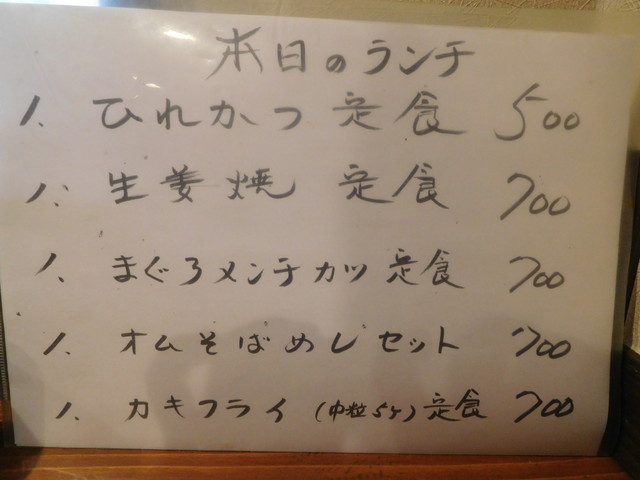 本日のランチ
1、ひれかつ定食 500
1、生姜焼定食 700
1、まぐろメンチカツ定食 700
1、オムそばめしセット 700
1、カキフライ(中粒5ケ)定食 700